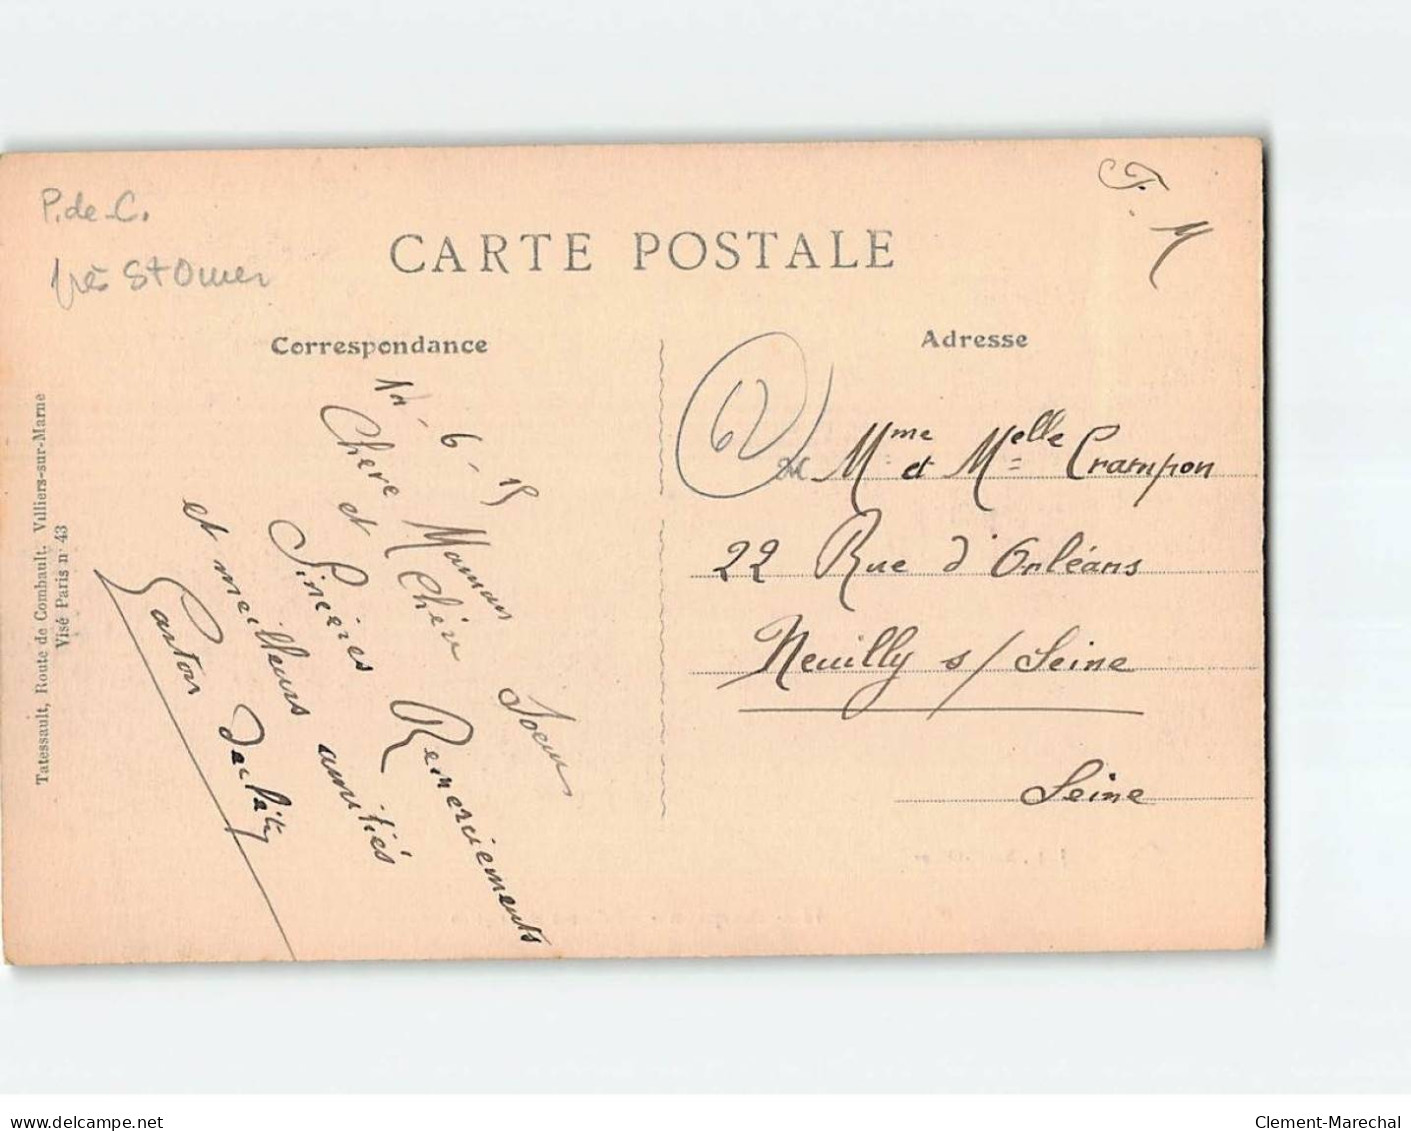 P. de-C.
près St Omer
F. M
CARTE POSTALE
Correspondance
Adresse
14-6-15
Chere Maman
et Chère Soeur
Sincères Remerciements
et meilleurs amitiés
Gaston
62
Mme et Melle Crampon
22 Rue d'Orléans
Neuilly s/ Seine
Seine
Tatessault, Route de Combault, Villiers-sur-Marne
Visé Paris n° 43
delcampe.net
Clement-Marechal